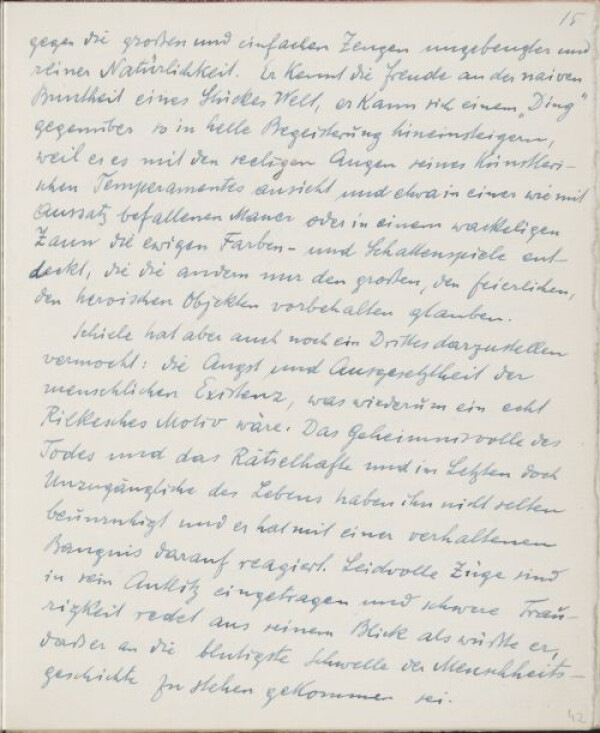 15
gegen die großen und einfachen Zeugen ungebeugter und
reiner Natürlichkeit. Er kennt die Freude an der naiven
Buntheit eines Stückes Welt, er kann sich einem „Ding"
gegenüber so in helle Begeisterung hineinsteigern,
weil er es mit den seeligen Augen seines künstleri-
schen Temperamentes ansieht und etwa in einer wie mit
Aussatz befallenen Mauer oder in einem wackeligen
Zaun die ewigen Farben- und Schattenspiele ent-
deckt, die die andern nur den großen, den feierlichen,
den heroischen Objekten vorbehalten glauben.
Schiele hat aber auch noch ein Drittes darzustellen
vermocht: die Angst und Ausgesetztheit der
menschlichen Existenz, was wiederum ein echt
Rilkesches Motiv wäre. Das Geheimnisvolle des
Todes und das Rätselhafte und im Letzten doch
Unzugängliche des Lebens haben ihn nicht selten
beunruhigt und er hat mit einer verhaltenen
Bangnis darauf reagiert. Leidvolle Züge sind
in sein Antlitz eingetragen und schwere Trau-
rigkeit redet aus seinem Blick als wüßte er,
daß er an die blutigste Schwelle der Menschheits-
geschichte zu stehen gekommen sei.
42